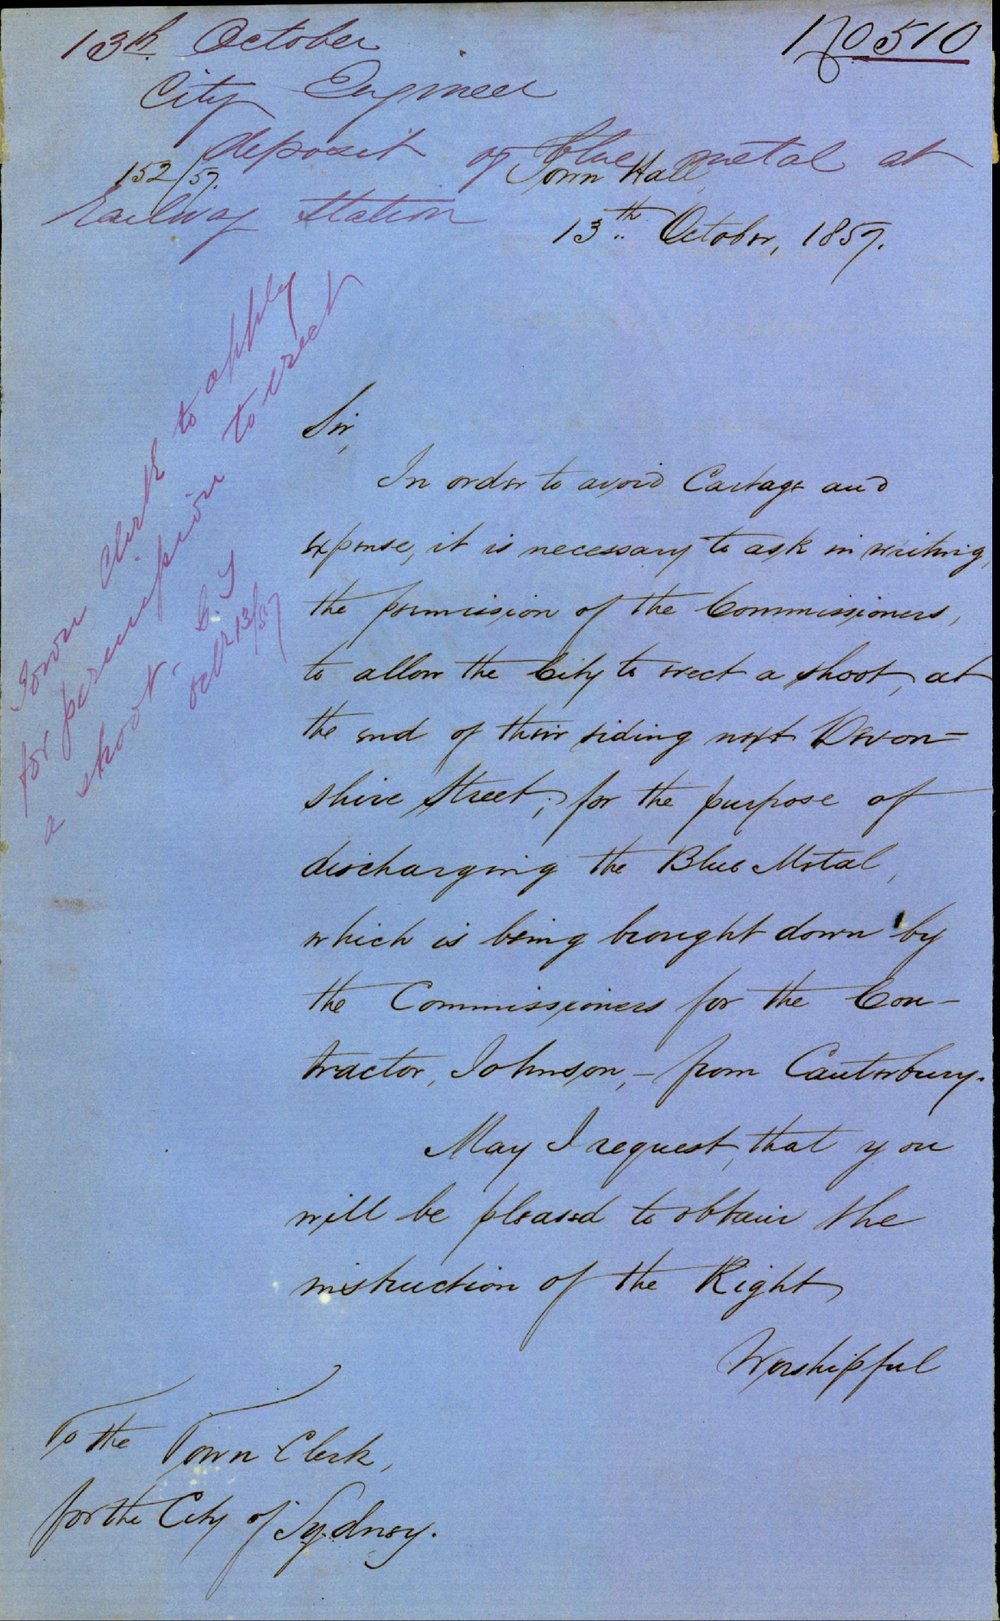 13th October
No 510
City Engineer
deposit of blue metal at
Railway Station
152/57.
Town Hall,
13th October, 1857.
Town Clerk to apply
for permission to erect
a shoot.
Octr 13/57
Sir,
In order to avoid Cartage and
expense, it is necessary to ask in writing,
the permission of the Commissioners,
to allow the City to erect a shoot, at
the end of their siding next Devon-
shire Street; for the purpose of
discharging the Blue Metal,
which is being brought down by
the Commissioners for the Con-
tractor, Johnson, - from Canterbury.
May I request, that you
will be pleased to obtain the
instruction of the Right
Worshipful
To the Town Clerk,
for the City of Sydney.